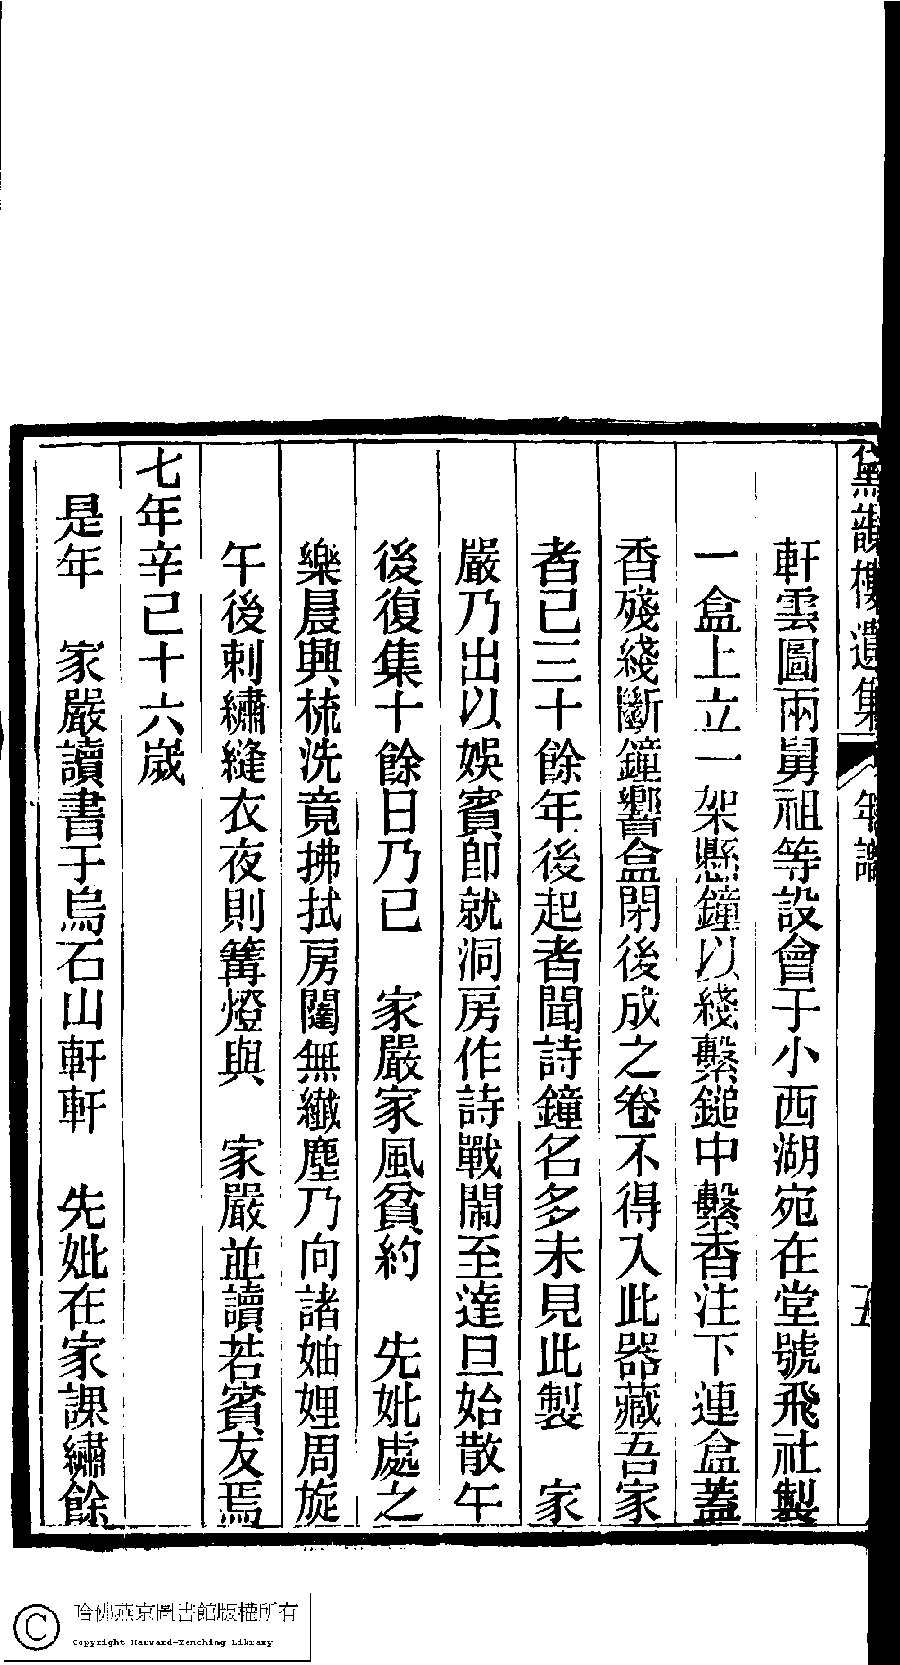 黛韻樓遺集 年譜 五
軒雲圖兩舅祖等設會于小西湖宛在堂號飛社製
一盒上立一架懸鐘以綫繫鎚中繫香注下連盒蓋
香殘綫斷鐘響盒閉後成之卷不得入此器藏吾家
者已三十餘年後起者聞詩鐘名多未見此製 家
嚴乃出以娛賓卽就洞房作詩戰鬧至達旦始散午
後復集十餘日乃已 家嚴家風貧約 先妣處之
樂晨興梳洗竟拂拭房闥無纖塵乃向諸妯娌周旋
午後刺繡縫衣夜則篝燈與 家嚴並讀若賓友焉
七年辛巳十六歲
是年 家嚴讀書于烏石山軒軒 先妣在家課繡餘
哈佛燕京圖書館版權所有
Copyright Harvard-Yenching Library